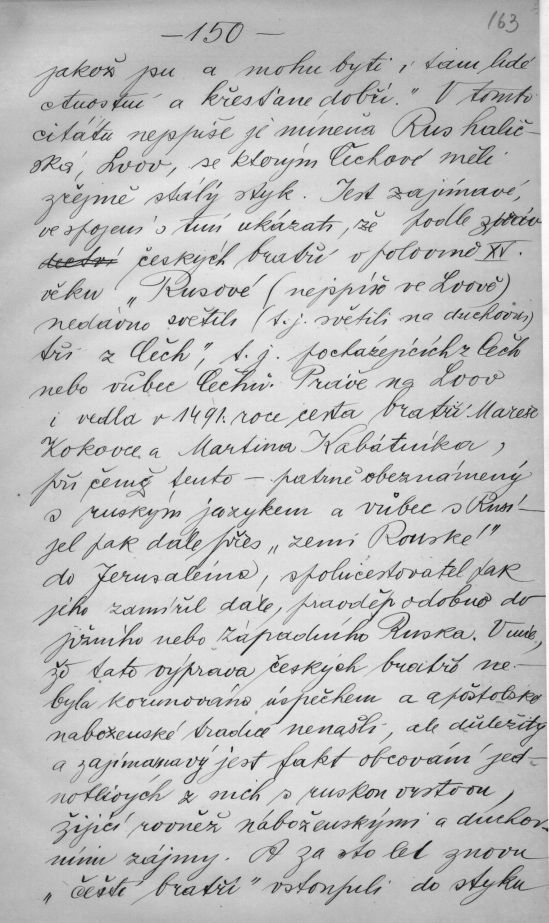 163
—150—
jakož jsu a mohu byti i tam lidé
ctnostní a křesťane dobří." V tomto
citátu nejspíše je míněna Rus halič-
ská, Lvov, se kterým Čechové měli
zřejmě stálý styk. Jest zajímavé,
ve spojení s tím ukázati, že podle zpráv
českých bratří v polovině XV.
věku „Rusové (nejspíše ve Lvově)
nedávno světili (t.j. světili na duchovní)
tři z Čech", t.j. pocházejících z Čech
nebo vůbec Čechů. Práve na Lvov
i vedla v 1491. roce cesta bratří Mareše
Kokovce a Martina Kabátníka,
při čemž tento — patrně obeznámený
s ruským jazykem a vůbec s Rusí —
jel pak dále přes „zemi Rouské"
do Jerusaléma, spolucestovatel pak
jeho zamířil dále, pravděpodobně do
jižního nebo západního Ruska. Víme,
že tato výprava českých bratří ne-
byla korunována úspěchem a apoštolské
náboženské tradice nenašli, ale důležitý
a zajímavý jest fakt obcování jed-
notlivých z nich s ruskou vrstvou,
žijící rovněž náboženskými a duchov-
ními zájmy. A za sto let znovu
„čeští bratří" vstoupili do styku